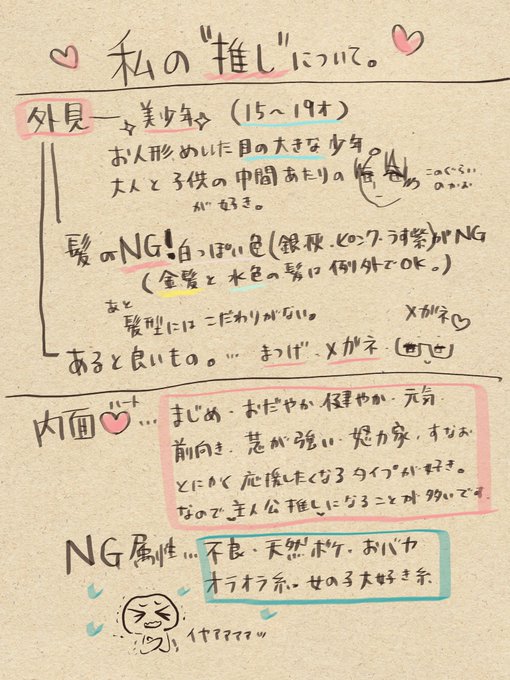 私の"推し"について。
外見 美少年 (15〜19才)
お人形めいた目の大きな少年。
大人と子供の中間あたりの
が好き。
このぐらい
のかお
髪のNG!白っぽい色(銀.灰.ピンク.うす紫)がNG
(金髪と水色の髪は例外でOK。)
あと
髪型にはこだわりがない。
メガネ♡
あると良いもの。… まつげ.メガネ.
内面♡ハート…
まじめ・おだやか.健やか・元気・
前向き.芯が強い.努力家.すなお
とにかく応援したくなるタイプが好き。
なので主人公推しになることが多いです.
NG属性… 不良・天然ボケ・おバカ
オラオラ系。女の子大好き系
イヤアアアア